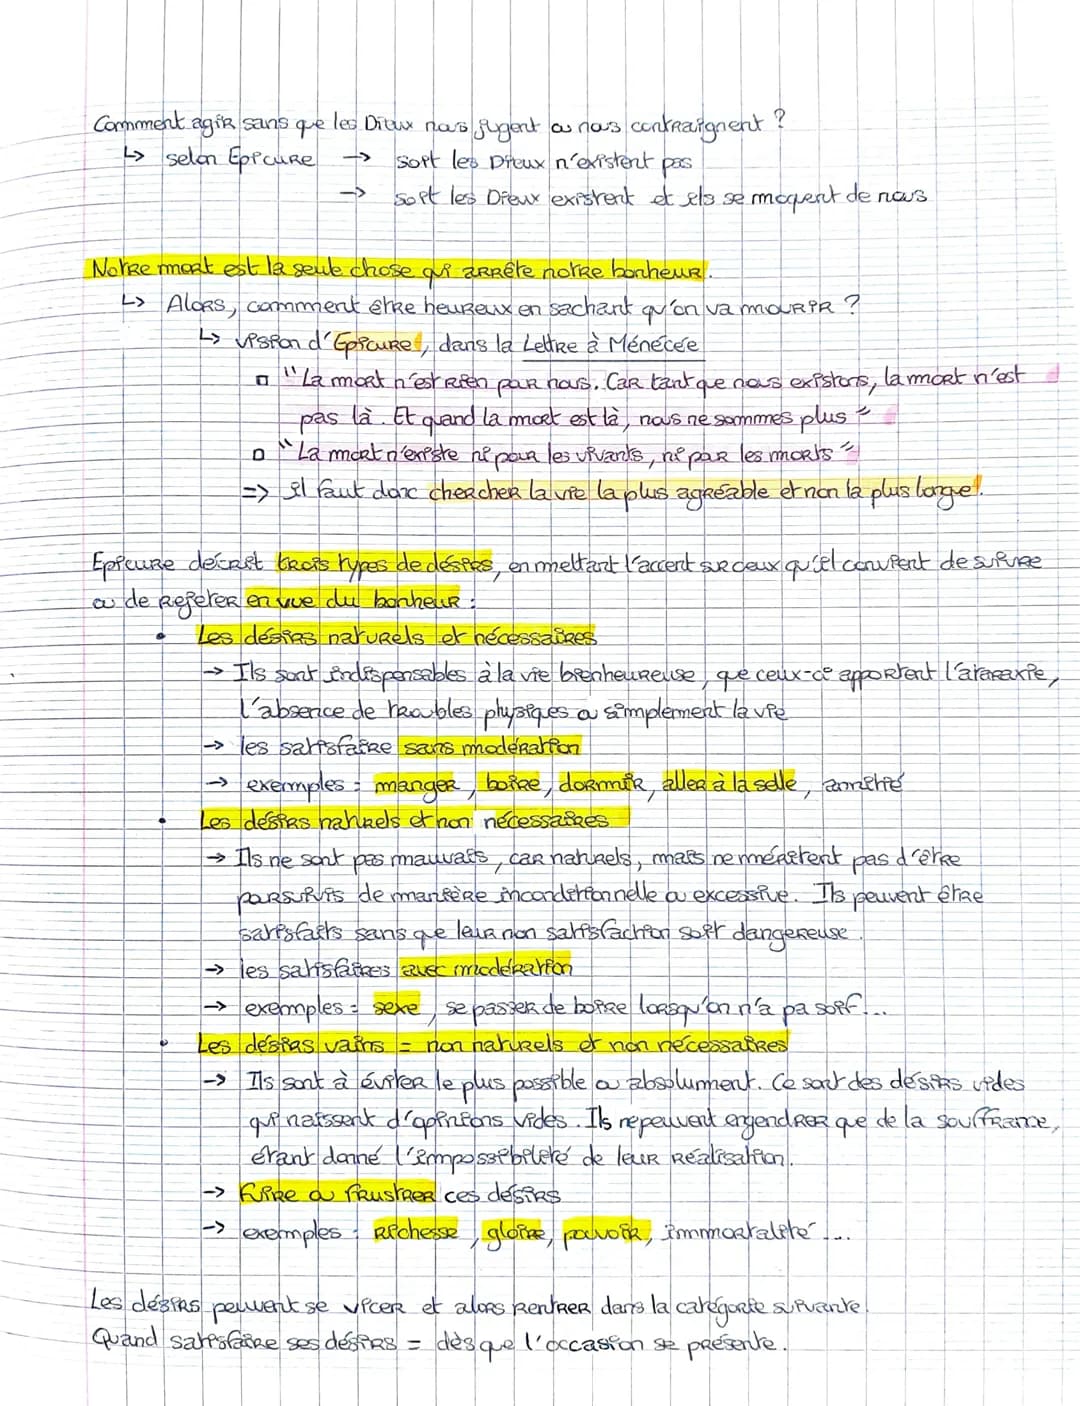 Comment agir sans que les Dieux nous jugent ou nous contraignent ?
↳ selon Epicure → soit les Dieux n'existent pas
→ soit les Dieux existent et ils se moquent de nous
Notre mort est la seule chose qui arrête notre bonheur.
↳ Alors, comment être heureux en sachant qu'on va mourir ?
↳ vision d'Epicure, dans la Lettre à Ménécée
▫ "La mort n'est rien par nous. Car tant que nous existons, la mort n'est
pas là. Et quand la mort est là, nous ne sommes plus"
▫ "La mort n'existe ni pour les vivants, ni par les morts"
=> il faut donc chercher la vie la plus agréable et non la plus longue.
Epicure décrit trois types de désirs, en mettant l'accent sur ceux qu'il convient de suivre
ou de rejeter en vue du bonheur :
• Les désirs naturels et nécessaires
→ Ils sont indispensables à la vie bienheureuse, que ceux-ci apportent l'ataraxie,
l'absence de troubles physiques ou simplement la vie
→ les satisfaire sans modération
→ exemples : manger, boire, dormir, aller à la selle, amitié
• Les désirs naturels et non nécessaires
→ Ils ne sont pas mauvais, car naturels, mais ne méritent pas d'être
poursuivis de manière inconditionnelle ou excessive. Ils peuvent être
satisfaits sans que leur non satisfaction soit dangereuse.
→ les satisfaires avec modération
→ exemples : sexe, se passer de boire lorsqu'on n'a pa soif...
• Les désirs vains = non naturels et non nécessaires
→ Ils sont à éviter le plus possible ou absolumment. Ce sont des désirs vides
qui naissent d'opinions vides. Ils ne peuvent engendrer que de la souffrance,
étant donné l'impossibilité de leur réalisation.
→ Fuire ou frustrer ces désirs
→ exemples : richesse, gloire, pouvoir, immortalité...
Les désirs peuvent se vicer et alors rentrer dans la catégorie suivante.
Quand satisfaire ses désirs = dès que l'occasion se présente.